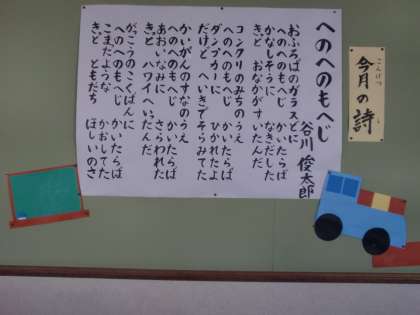 こんげつ
今月の詩
し
へのへのもへじ
谷川俊太郎
おふろばのガラスどに
へのへのもへじ かいたらば
かなしそうに なきだした
きっと おなかがすいたんだ
コンクリのみちのうえ
へのへのもへじ かいたらば
ダンプカーに ひかれたよ
だけど へいきでそらみてた
かいがんのすなのうえ
へのへのもへじ かいたらば
あおいなみに さらわれた
きっと ハワイへいったんだ
がっこうのこくばんに
へのへのもへじ かいたらば
こまたような かおしてた
きっと ともだち ほしいのさ